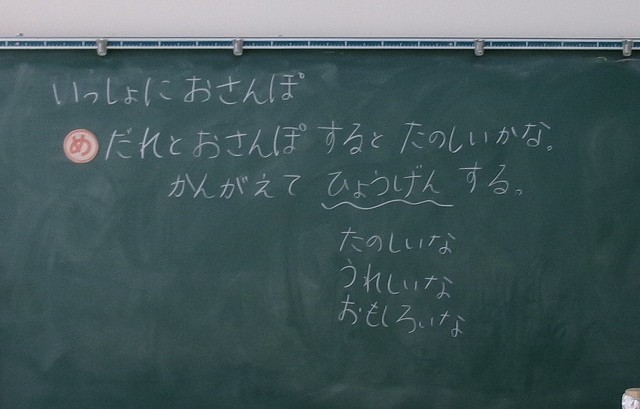 いっしょに おさんぽ
め だれとおさんぽ すると たのしいかな。
かんがえて ひょうげん する。
たのしいな
うれしいな
おもしろいな